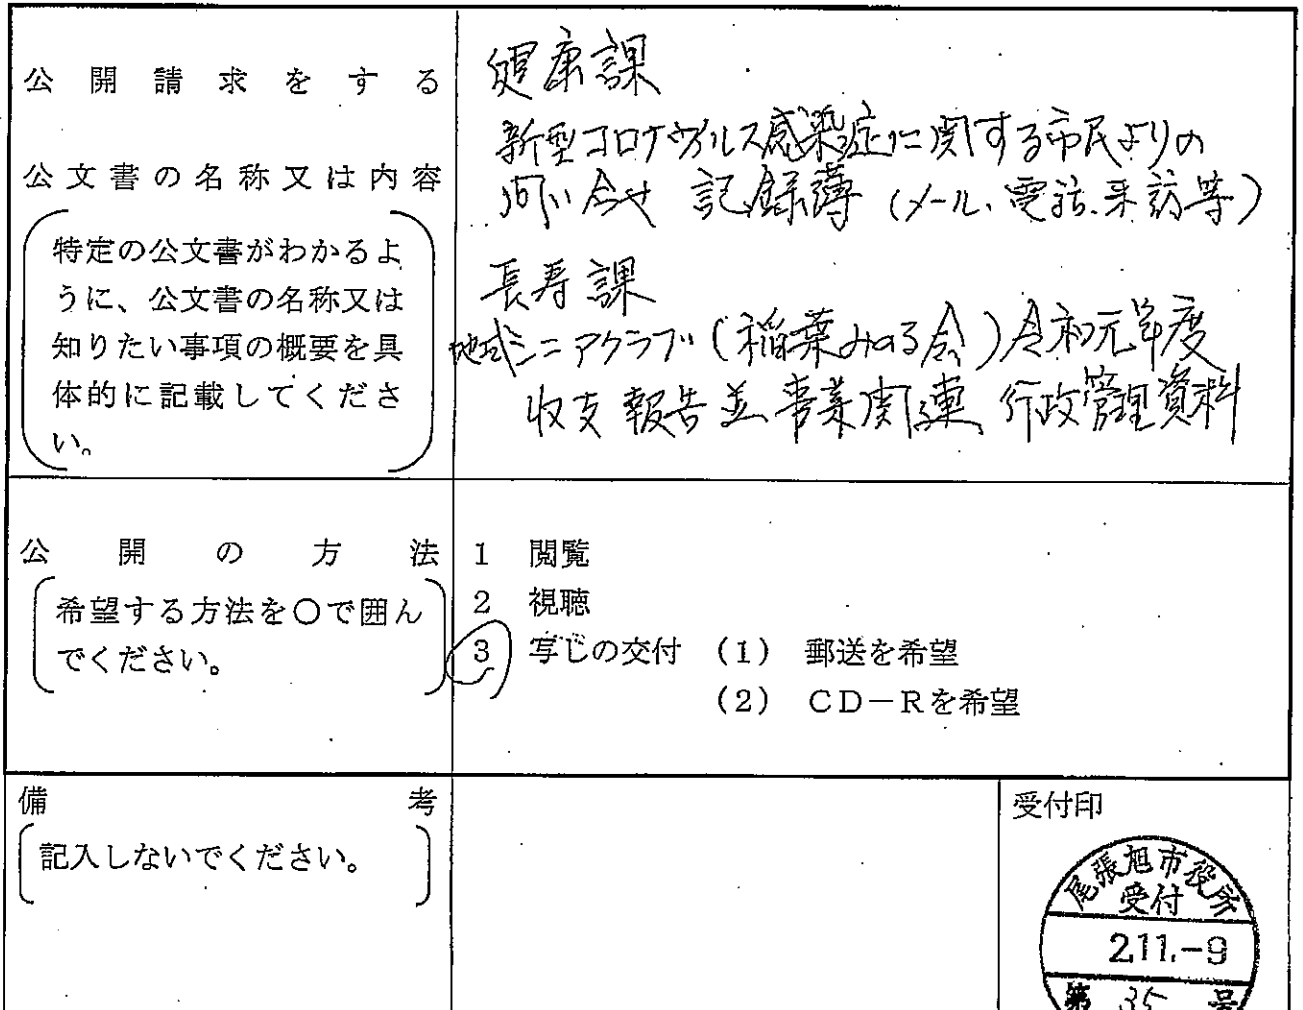 公開請求をする
公文書の名称又は内容
特定の公文書がわかるよ
うに、公文書の名称又は
知りたい事項の概要を具
体的に記載してくださ
い。
健康課
新型コロナウイルス感染症に関する市民よりの
問い合せ 記録簿 (メール、電話、来訪等)
長寿課
地域シニアクラブ(稲葉みのる会)令和元年度
収支報告並事業関連、行政管理資料
公開の方法
希望する方法を○で囲ん
でください。
1 閲覧
2 視聴
3 写しの交付 (1) 郵送を希望
(2) CD-Rを希望
備考
記入しないでください。
受付印
尾張旭市役所
受付
2.11.-9
第 35 号